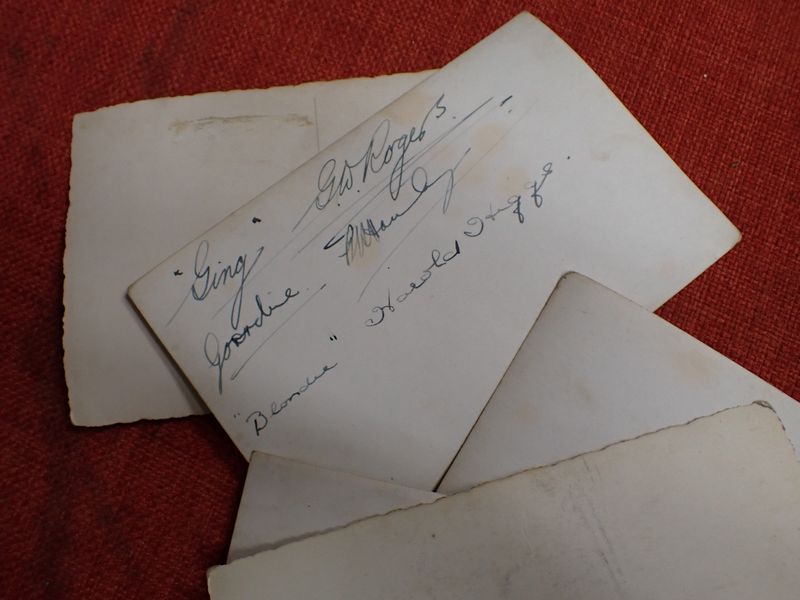 "Ging" G.W. Rogers.
Goardie.
"Blondie" Harold Hugge.